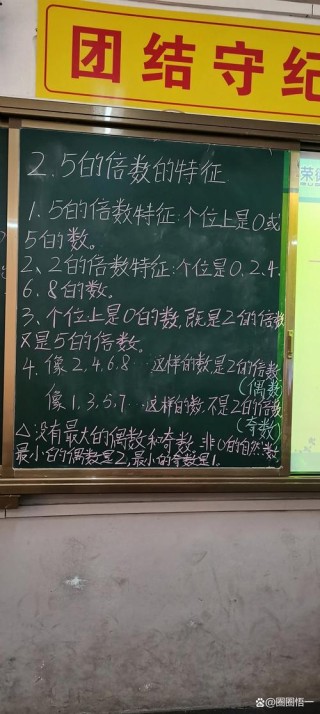 团结守纪
2.5的倍数的特征
1.5的倍数特征:个位上是0或
5的数。
2、2的倍数特征:个位是0、2、4、
6、8的数。
3、个位上是0的数,既是2的倍数
又是5的倍数。
4.像2,4,6,8…这样的数,是2的倍数
(偶数)
像1,3,5,7…这样的数,不是2的倍数
(奇数)
△:没有最大的偶数和奇数,非0的自然数
最小的偶数是2,最小的奇数是1。
荣德
@圈圈悟一